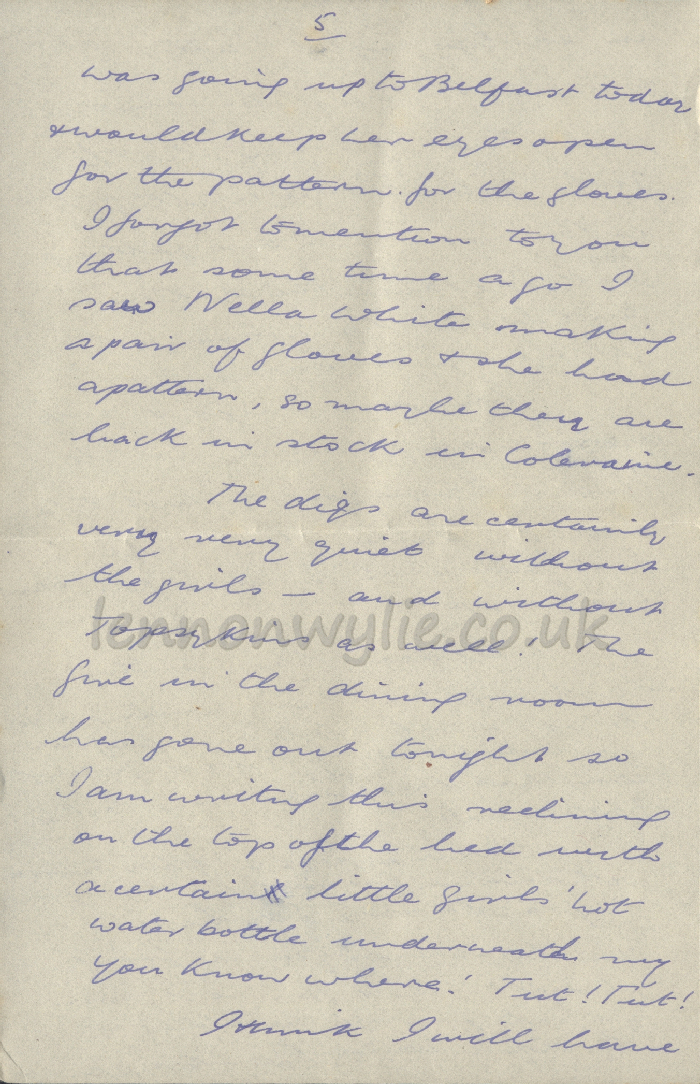 5
was going up to Belfast today
& would keep her eyes open
for the pattern for the gloves.
I forgot to mention to you
that some time ago I
saw Nella White making
a pair of gloves & she had
a pattern, so maybe they are
back in stock in Coleraine.
The digs are certainly
very very quiet without
the girls — and without
Topsykins as well! The
fire in the dining room
has gone out tonight so
I am writing this reclining
on the top of the bed with
a certain little girls' hot
water bottle underneath my
you know where! Tut! Tut!
I think I will have
lennonwylie.co.uk